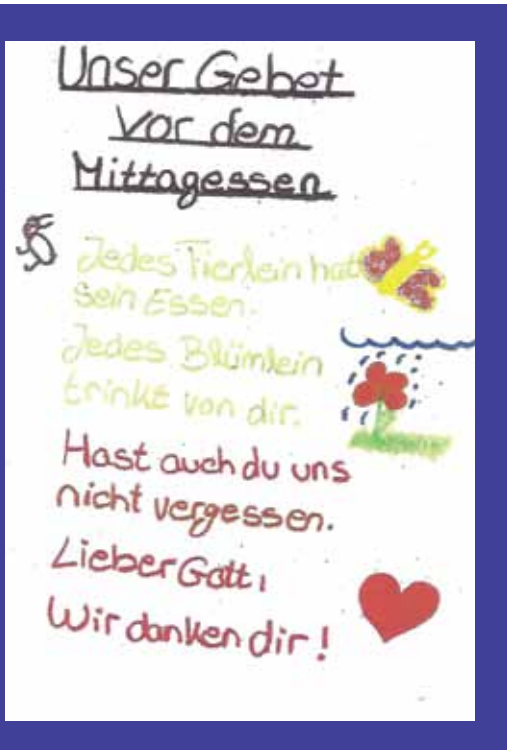 Unser Gebet
vor dem
Mittagessen
Jedes Tierlein hat
sein Essen.
Jedes Blümlein
trinkt von dir.
Hast auch du uns
nicht vergessen.
Lieber Gott,
Wir danken dir!